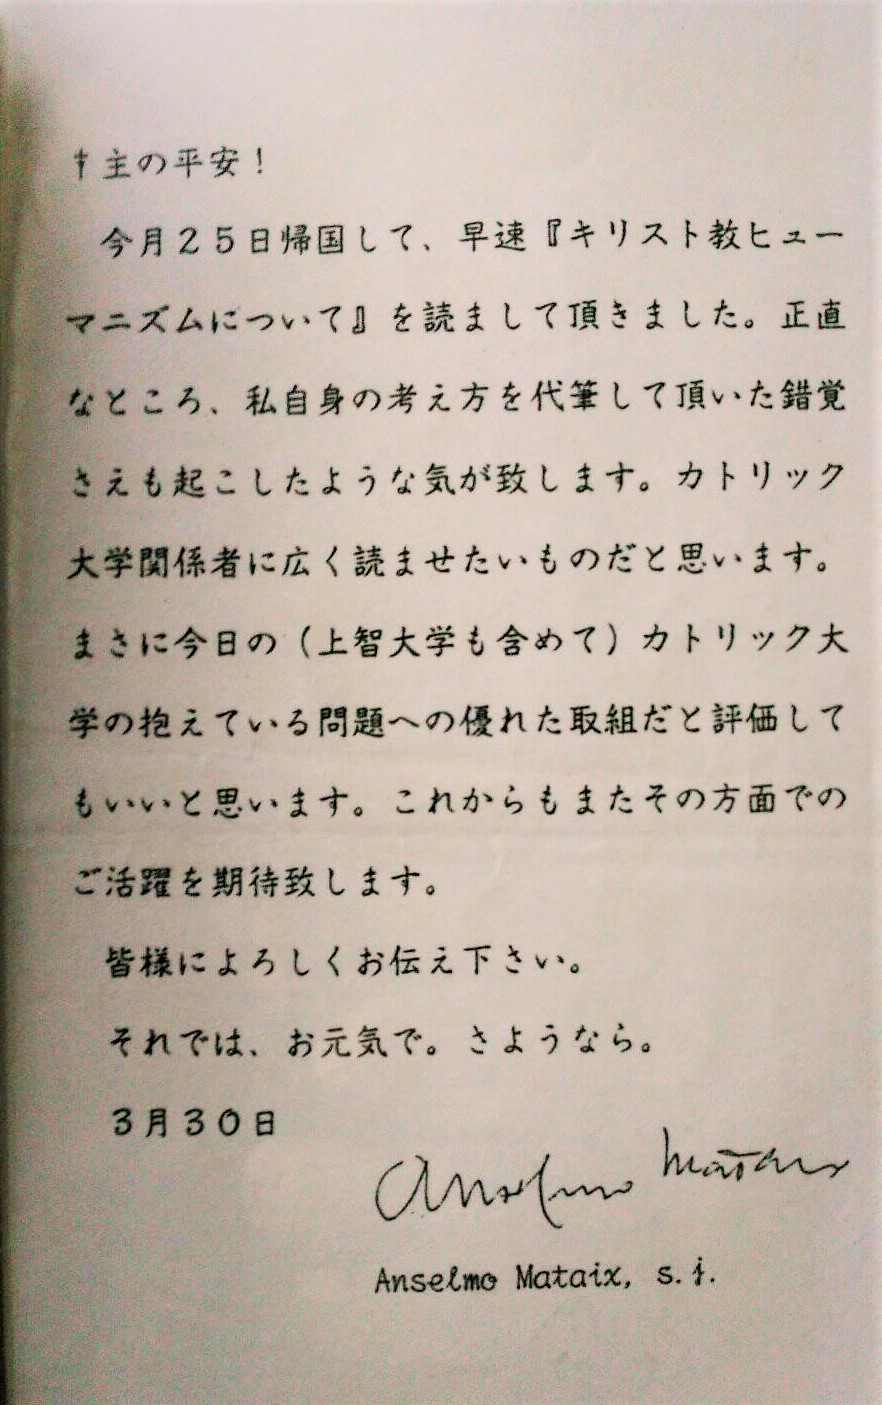 †主の平安！
今月２５日帰国して、早速『キリスト教ヒュー
マニズムについて』を読まして頂きました。正直
なところ、私自身の考え方を代筆して頂いた錯覚
さえも起こしたような気が致します。カトリック
大学関係者に広く読ませたいものだと思います。
まさに今日の（上智大学も含めて）カトリック大
学の抱えている問題への優れた取組だと評価して
もいいと思います。これからもまたその方面での
ご活躍を期待致します。
皆様によろしくお伝え下さい。
それでは、お元気で。さようなら。
３月３０日
Anselmo Mataix
Anselmo Mataix, s.j.